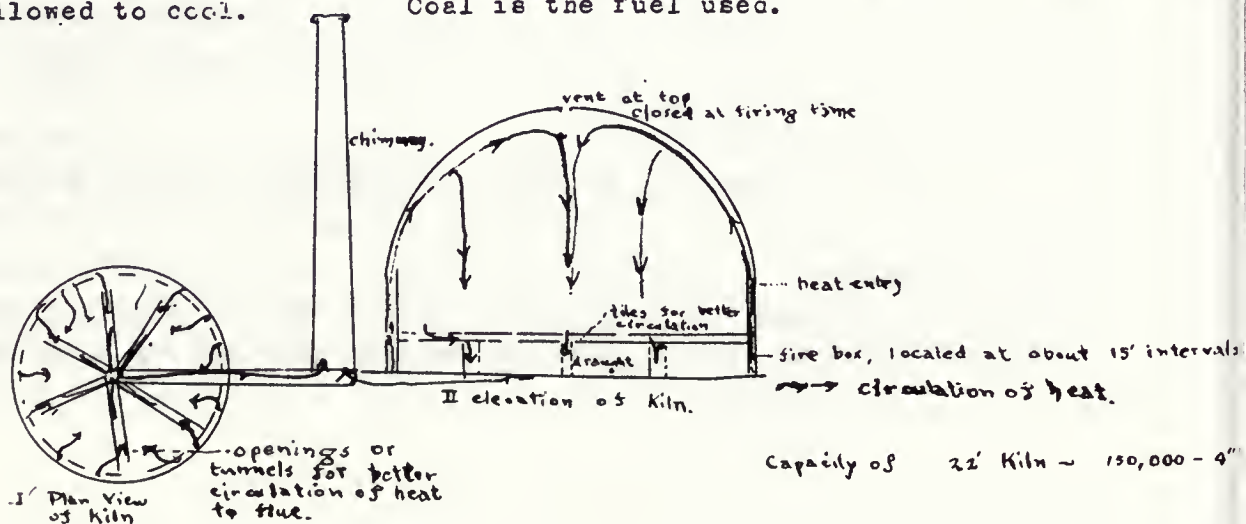 llowed to cool.
Coal is the fuel used.
vent at top
closed at firing time
chimney.
heat entry
tiles for better
circulation
draught
fire box, located at about 15' intervals
circulation of heat.
II elevation of Kiln.
openings or
tunnels for better
circulation of heat
to flue.
Plan View
of Kiln
Capacity of 22' Kiln ~ 150,000 - 4"